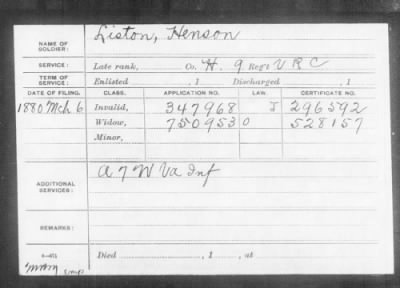 NAME OF SOLDIER: Liston, Henson
SERVICE: Late rank, Co. H. 9 Reg't V R C
TERM OF SERVICE: Enlisted , 1 Discharged , 1
DATE OF FILING. CLASS. APPLICATION NO. LAW. CERTIFICATE NO.
1880 Mch 6 Invalid, 347968 J 296592
Widow, 750953 0 528157
Minor,
ADDITIONAL SERVICES: A 7 W Va Inf
REMARKS:
Died , 1 , at